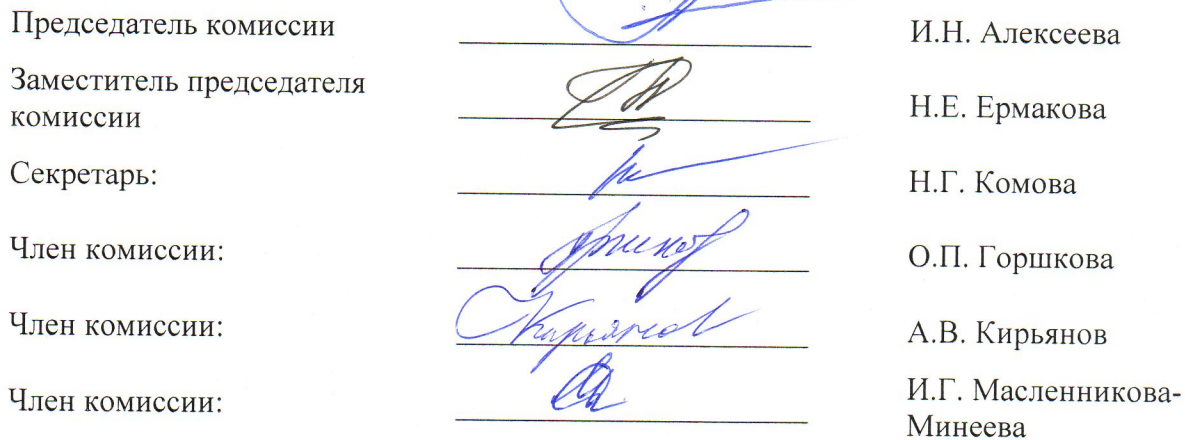 Председатель комиссии И.Н. Алексеева
Заместитель председателя
комиссии Н.Е. Ермакова
Секретарь: Н.Г. Комова
Член комиссии: О.П. Горшкова
Член комиссии: Кирьянов А.В. Кирьянов
Член комиссии: И.Г. Масленникова-
Минеева